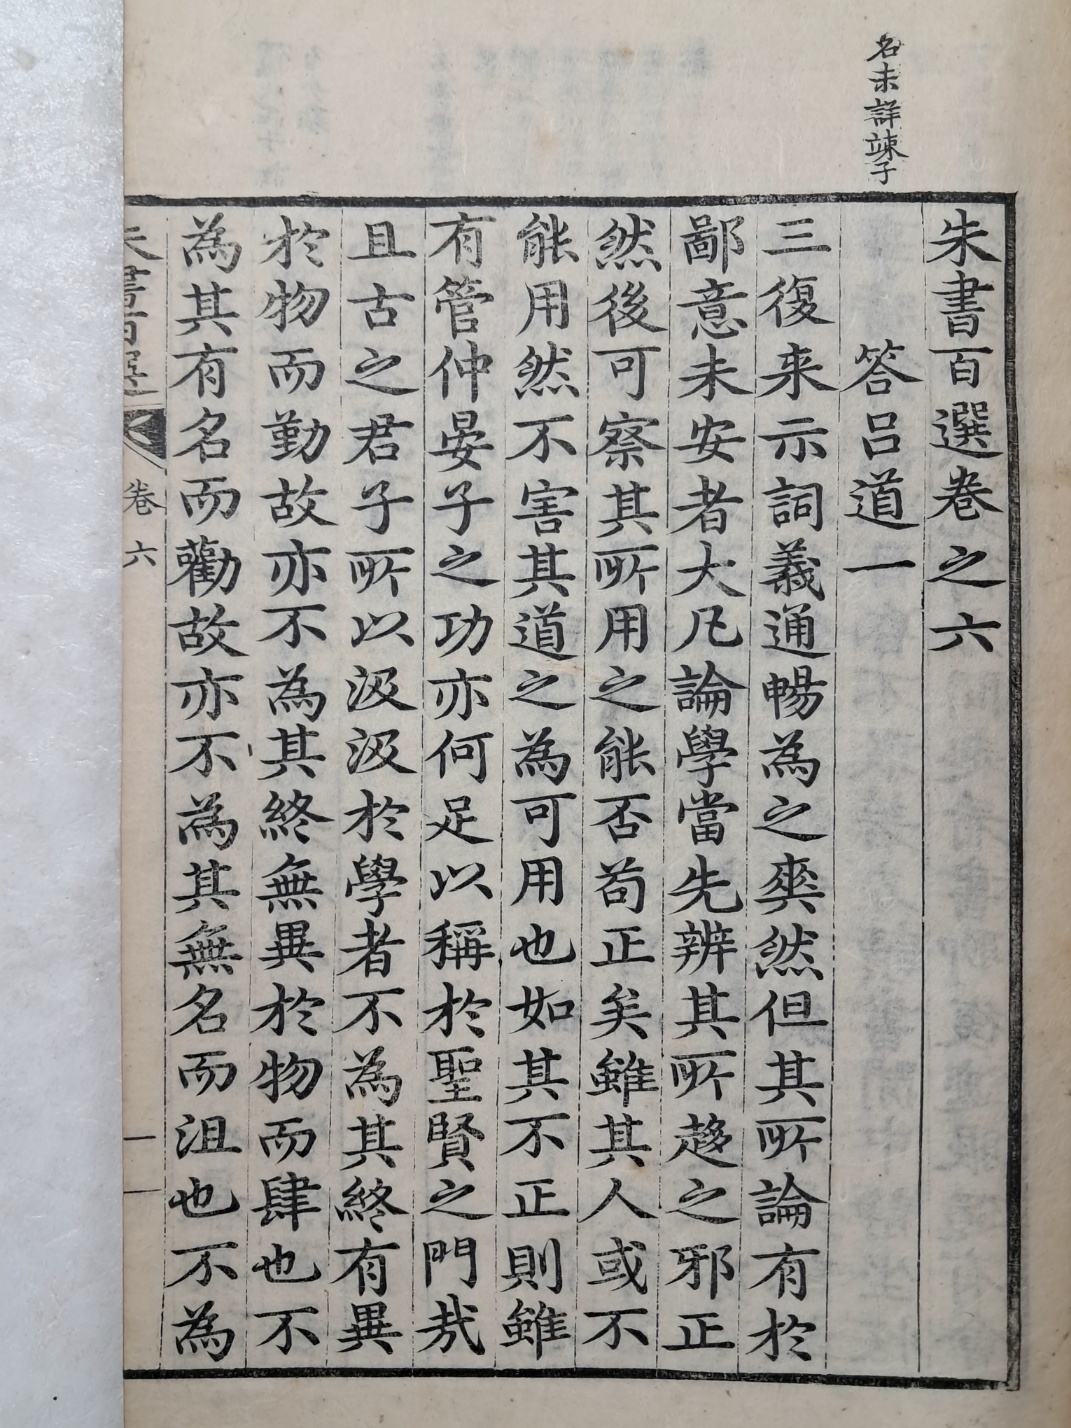 名未詳竦子
朱書百選卷之六
答呂道一
三復来示詞義通暢為之爽然但其所論有於
鄙意未安者大凡論學當先辨其所趍之邪正
然後可察其所用之能否苟正矣雖其人或不
能用然不害其道之為可用也如其不正則雖
有管仲晏子之功亦何足以稱於聖賢之門㢤
且古之君子所以汲汲於學者不為其終有異
於物而勤故亦不為其終無異於物而肆也不
為其有名而勸故亦不為其無名而沮也不為
朱書百選 卷六 一